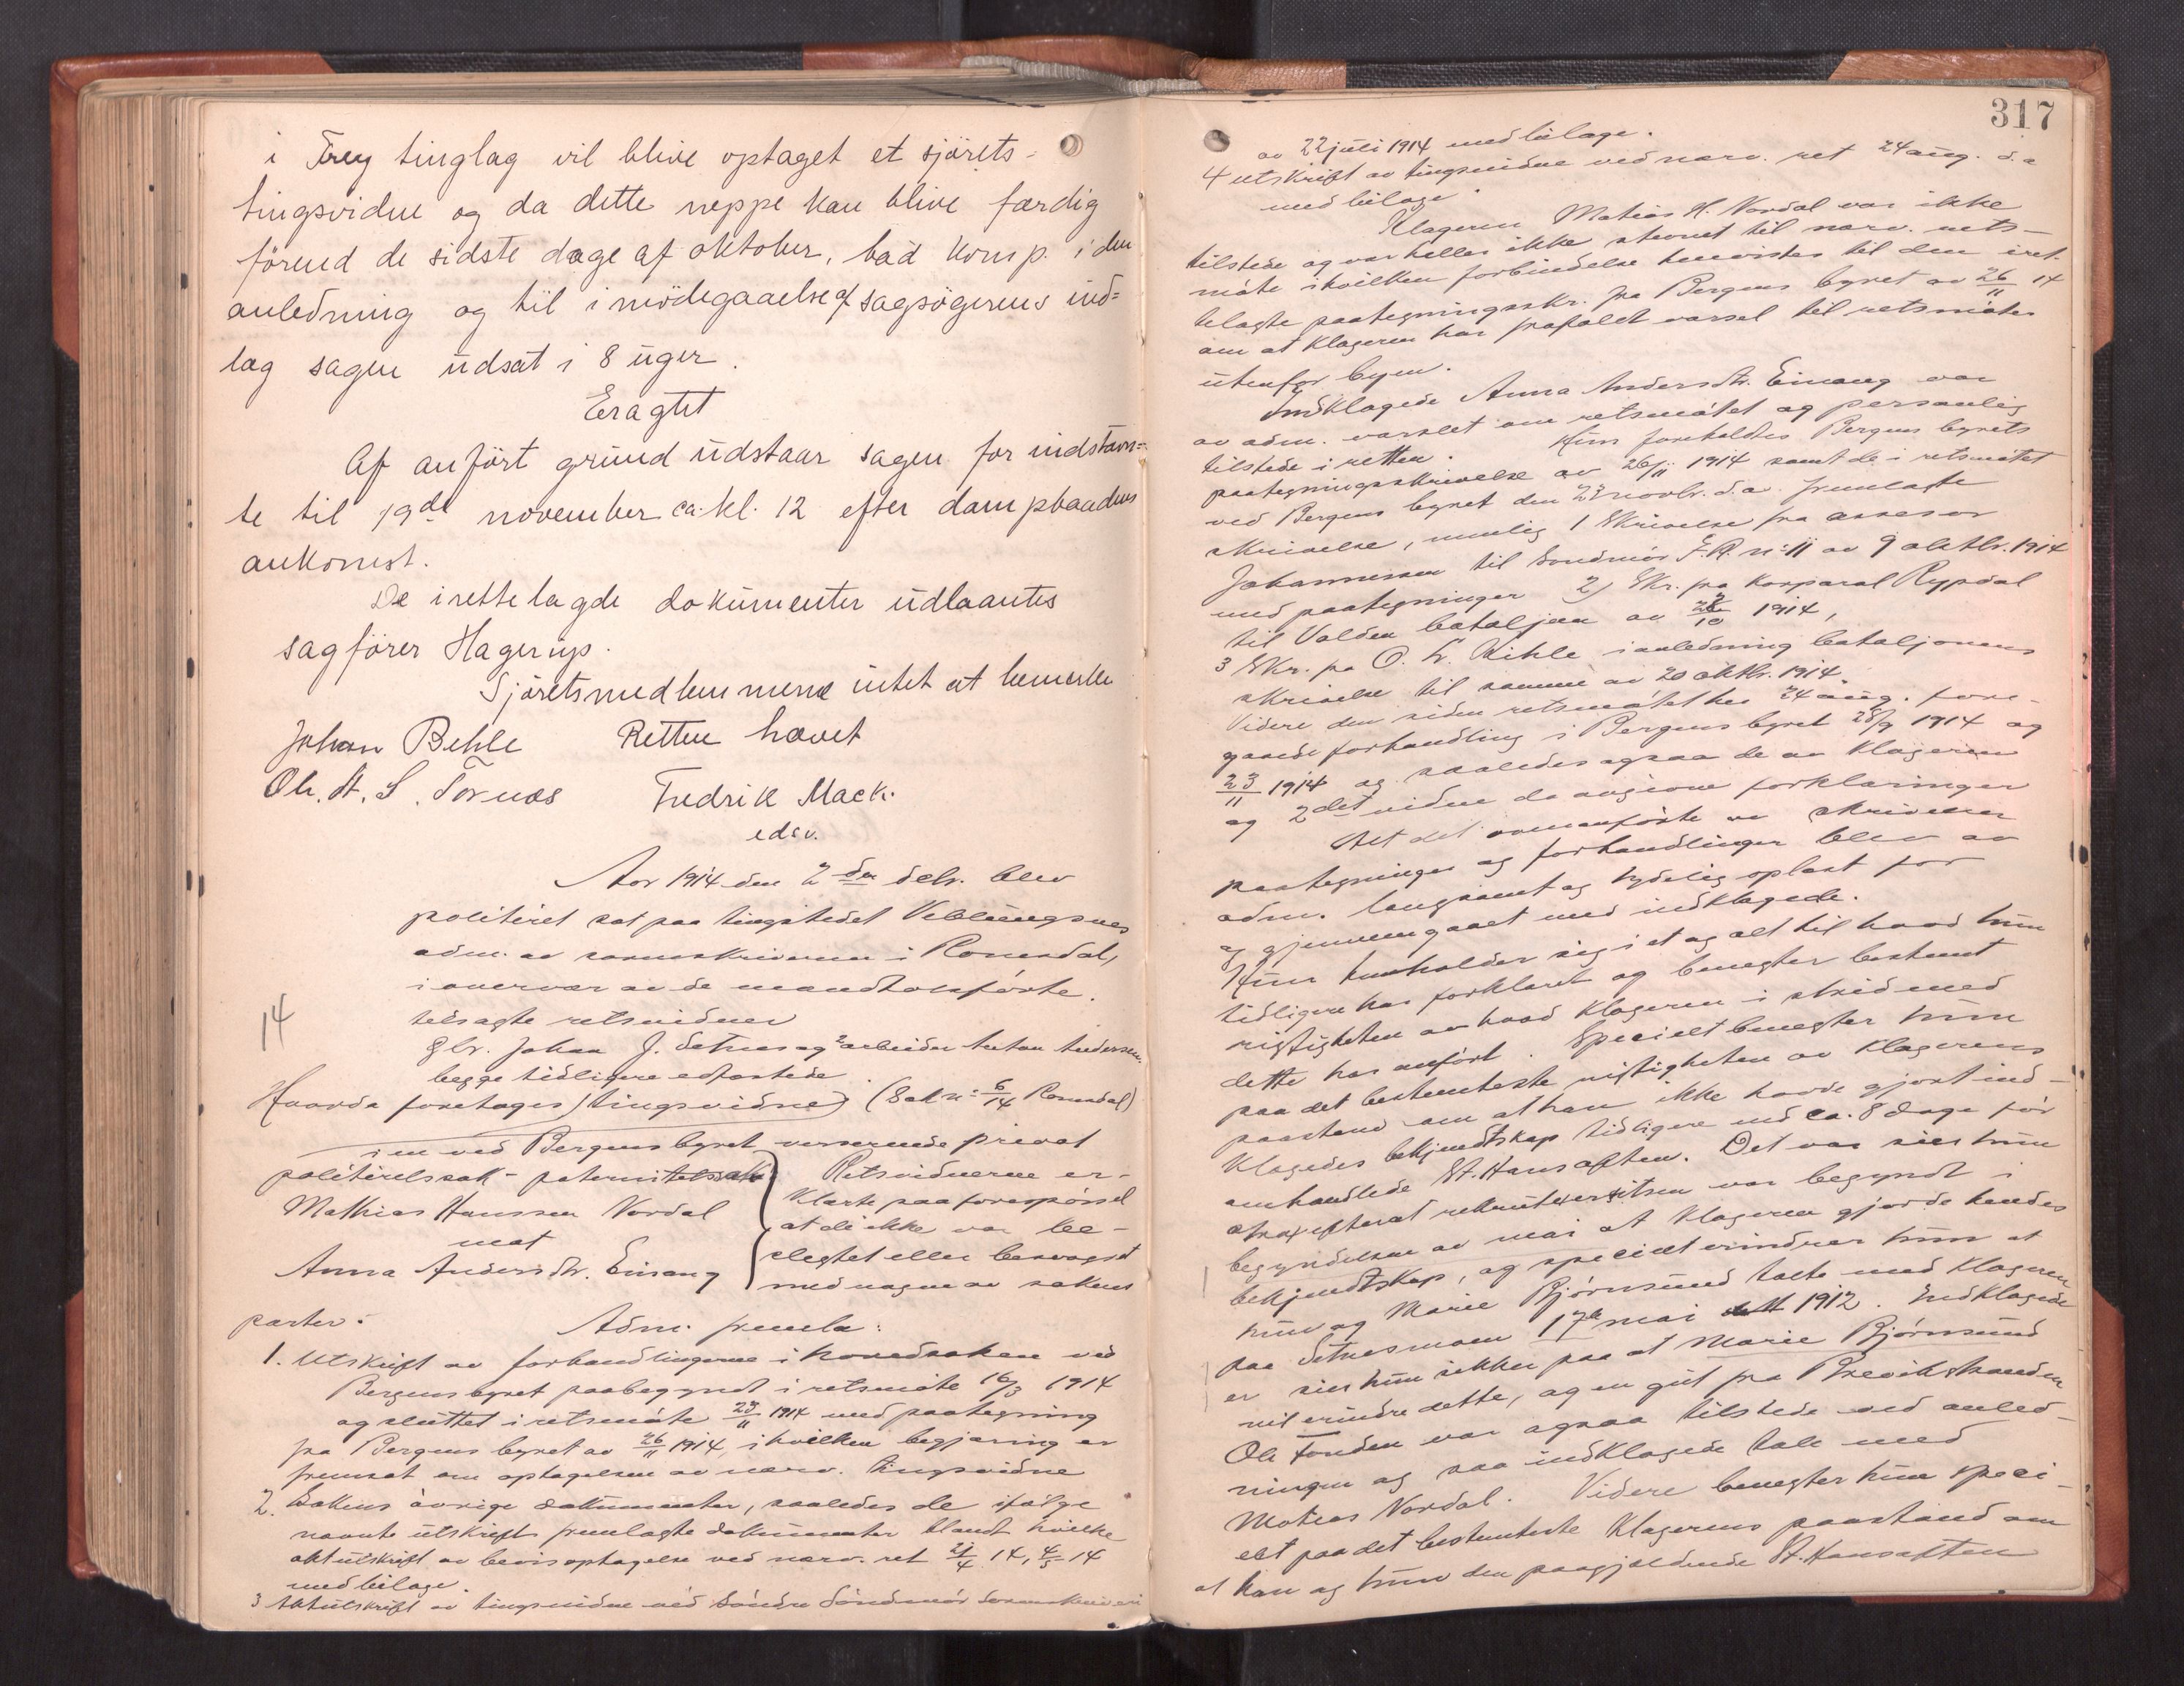 i Frey tinglag vil blive optaget et sjörets-
tingsvidne og da dette neppe kan blive færdig
förend de sidste dage af oktober, bad komp. i den
anledning og til imödegaaelse af sagsögerens ind=
læg sagen udsat i 8 uger.
Eragtet
Af anfört grund udstaar sagen for indstævn=
te til 19de november ca. kl. 12 efter dampbaadens
ankomst.
De irettelagde dokumenter udlaantes
sagförer Hagerup.
Sjöretsmedlemmerne intet at bemerke
Johan Behle Retten hævet
Ole. A. S. Tornes Fredrik Mack.
edsv.
Aar 1914 den 2den dcbr. blev
politiret sat paa tingstedet Veblungsnes
adm. av sorenskriveren i Romsdal,
i overvær av de mandtalsförte.
14
tilsagte retsvidner
Gbr. Johan J. Setnes og arbeider Anton Andersen.
begge tidligere edfæstede
Hvorda foretages) tingsvidne) (Sak n: 6/14 Romsdal)
i en ved Bergens byret verserende privat
politiretssak - paternitetssak
Mathias Hanssen Nordal
mot
Anna Andersdtr. Einang
Retsvidnerne er-
klarte paa forespörsel
at de ikke var be-
slegtet eller besvogret
med nogen av sakens
parter.
Adm. fremla:
1. Utskrift av forhandlingerne i hovedsaken ved
Bergens byret paabegyndt i retsmöte 16/3 1914
og sluttet i retsmöte 23/11 1914 med paategning
fra Bergens byret av 26/11 1914, i hvilken begjæring er
fremsat om optagelsen av nærv. tingsvidne
2. Sakens övrige dokumenter, saaledes de ifölge
nævnte utskrift fremlagte dokumenter blandt hvilke
aktutskrift av bevisoptagelse ved nærv. ret 21/4 14, 4/5 14
med bilage.
3 Aktutskrift av tingsvidne ved Söndre Söndmör Sorenskriveri
317
av 22 juli 1914 med bilage.
4 utskrift av tingsvidne ved nærv. ret 24 aug. d.a
med bilage
Klageren Matias H. Nordal var ikke
tilstede og var heller ikke stevnet til nærv. rets-
möte i hvilken forbindelse henvistes til den iret-
telagte paategningsskr. fra Bergens byret av 26/11 14
om at klageren har frafaldt varsel til retsmöter
utenfor byen.
Indklagede Anna Andersdtr. Einang var
av adm. varslet om retsmötet og personlig
tilstede i retten. Hun foreholdtes Bergens byrets
paategningsskrivelse av 26/11 1914 samt de i retsmötet
ved Bergens byret den 23 novbr. d.a fremlagte
skrivelse, nemlig 1 Skrivelse fra assessor
Johannessen til Söndmör I.R. n: 11 av 9 oktbr. 1914
med paategninger 2) Skr. fra korporal Rypdal
til Valden bataljon av 1914,
3 Skr. fra O. L. Kihle i anledning bataljonens
skrivelse til samme av 20 oktbr. 1914.
Videre den siden retsmötet her 24 aug. fore-
gaaede forhandling i Bergens byret 28/9 1914 og
23/11 1914 og saaledes ogsaa de av klageren
og 2det vidne da avgivne forklaringer
Alt det ovenanförte av skrivelser
paategninger og forhandlinger blev av
adm. langsomt og tydelig oplæst for
og gjennemgaaet med indklagede.
Hun henholder sig i et og alt til hvad hun
tidligere har forklaret og benegter bestemt
rigtigheten av hvad klageren i strid med
dette har anfört. Specielt benegter hun
paa det bestemteste rigtigheten av klagerens
paastand om at han ikke havde gjort ind-
klagedes bekjendtskap tidligere end ca. 8 dage för
omhandlede St. Hansaften. Det var sier hun
straks efterat rekrutexersitsen var begyndt i
begyndelsen av mai at klageren gjorde hendes
bekjendtskap, og specielt erindrer hun at
hun og Marie Björnsund talte med klageren
paa Setnesmoen 17de mai 1912. Indklagede
er sier hun sikker paa at Marie Björnsund
vil erindre dette, og en gut fra Brevikstranden
Ole Fonden var ogsaa tilstede ved anled-
ningen og saa indklagede tale med
Matias Nordal. Videre benegter hun speci-
elt paa det bestemteste klagerens paastand om
at han og hun den paagjældende St. Hansaften